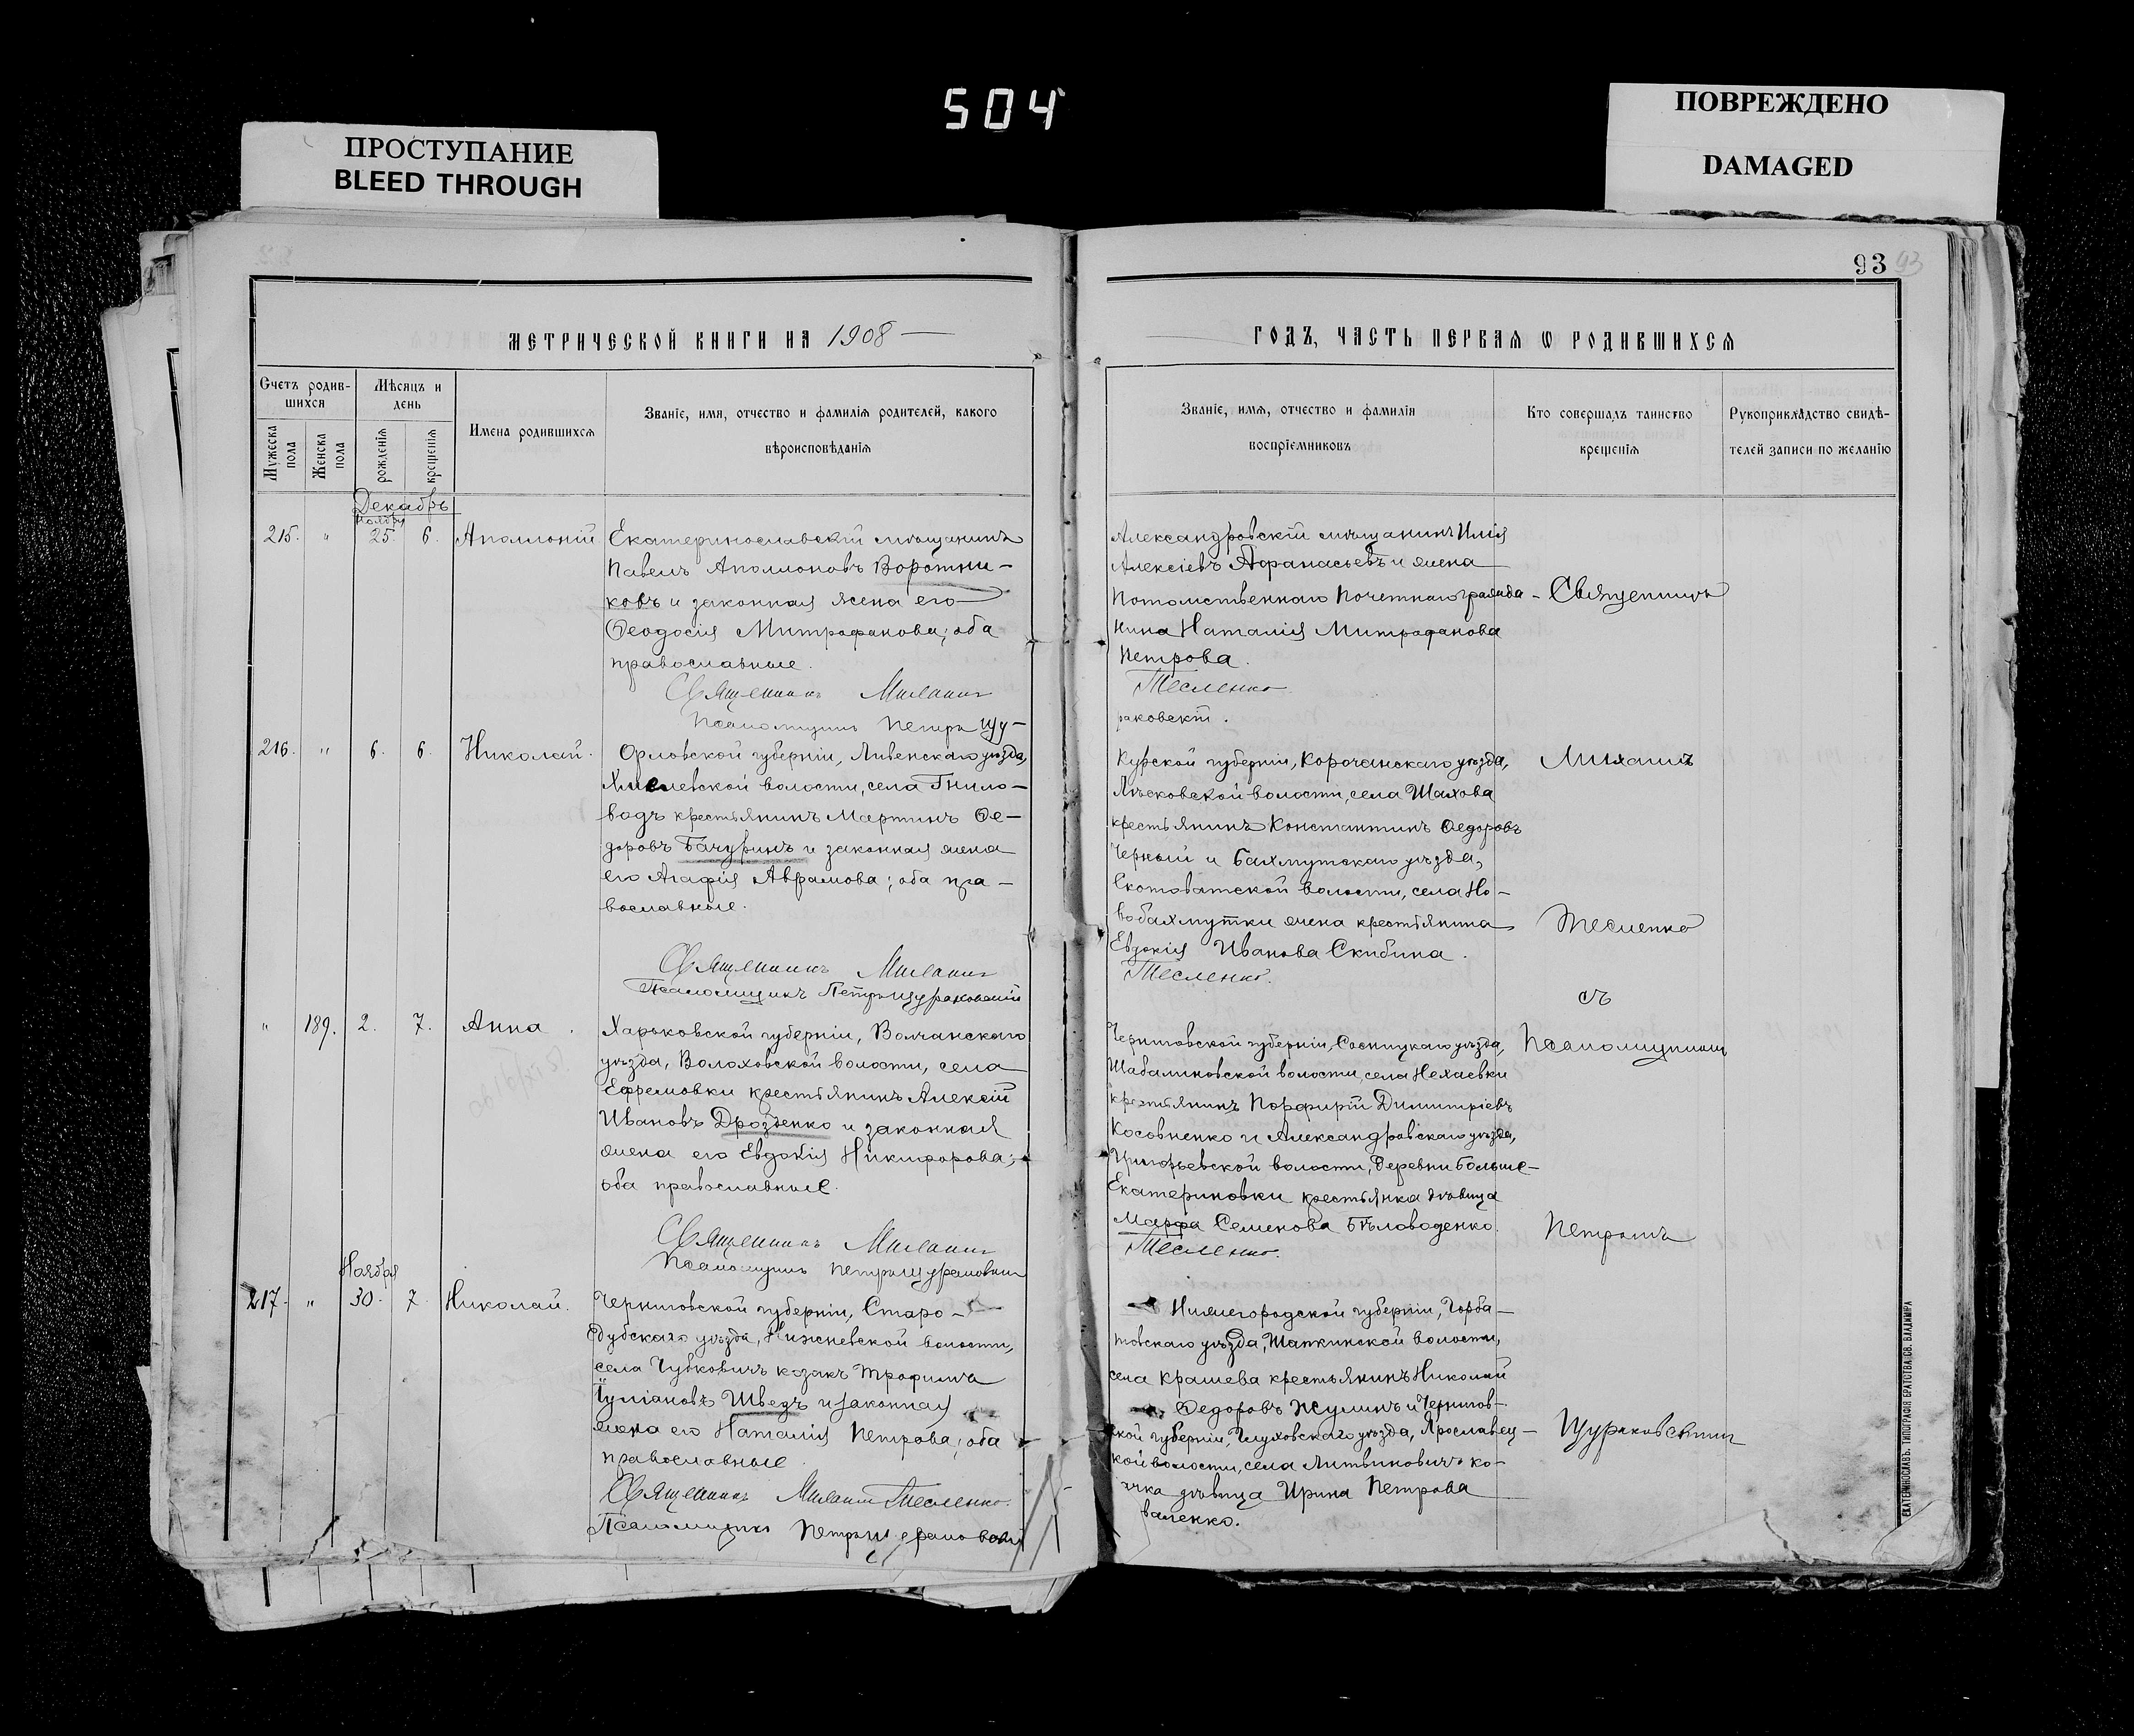 504
ПРОСТУПАНИЕ
BLEED THROUGH
ПОВРЕЖДЕНО
DAMAGED
МЕТРИЧЕСКОЙ КНИГИ НА 1908
Счетъ родив-
шихся
Мѣсяцъ и
день
Мужеска
пола
Женска
пола
рожденія
крещенія
Имена родившихся
Званіе, имя, отчество и фамилія родителей, какого
вѣроисповѣданія
Декабрь
Ноября
215. " 25. 6. Аполлоній
Екатеринославскій мѣщанинъ
Павелъ Аполлоновъ Воротни-
ковъ и законная жена его
Ѳеодосія Митрофанова; оба
православные.
Священникъ Михаилъ
Псаломщикъ Петръ Щу-
216. " 6. 6. Николай.
Орловской губерніи, Ливенскаго уѣзда,
волости, села Гнило-
водъ крестьянинъ Мартинъ Ѳе-
доровъ Бачуринъ и законная жена
его Агафія Аврамова; оба пра-
вославные.
Священникъ Михаилъ
Псаломщикъ Петръ Щураковскій
" 189. 2. 7. Анна.
Харьковской губерніи, Волчанскаго
уѣзда, Волоховской волости, села
Ефремовки крестьянинъ Алексій
Ивановъ Дрозденко и законная
жена его Евдокія Никифорова;
оба православные.
Священникъ Михаилъ
Псаломщикъ Петръ Щураковскій
Ноября
217. " 30. 7. Николай.
Черниговской губерніи, Старо-
дубскаго уѣзда, волости,
села Чубковичъ козакъ Трофимъ
Іуліановъ Шведъ и законная
жена его Наталія Петрова; оба
православные.
Священникъ Михаилъ Тесленко.
Псаломщикъ Петръ Щураковскій
93 93
ГОДЪ, ЧАСТЬ ПЕРВАЯ Ѡ РОДИВШИХСЯ
Званіе, имя, отчество и фамилія
воспріемниковъ
Кто совершалъ таинство
крещенія
Рукоприкладство свидѣ-
телей записи по желанію
Александровскій мѣщанинъ Илія
Алексіевъ Аѳанасьевъ и жена
Потомственнаго Почетнаго гражда-
нина Наталія Митрофанова
Петрова.
Тесленко
раковскій.
Курской губерніи, Корочанскаго уѣзда,
волости, села Шахова
крестьянинъ Константинъ Ѳедоровъ
Черный и Бахмутскаго уѣзда,
Скотоватской волости, села Но-
вобахмутки жена крестьянина
Евдокія Иванова Скибина.
Тесленко.
Черниговской губерніи, Сосницкаго уѣзда,
Шабалиновской волости, села Нехаевки
крестьянинъ Порфирій Димитріевъ
и Александровскаго уѣзда,
Григорьевской волости, деревни Больше-
Екатериновки крестьянка дѣвица
Марфа Семенова Бѣловоденко.
Тесленко.
Нижегородской губерніи, Горба-
товскаго уѣзда, Шапкинской волости,
села Крашева крестьянинъ Николай
Ѳедоровъ Жулинъ и Чернигов-
ской губерніи, Глуховскаго уѣзда, Ярославец-
кой волости, села Литвиновичъ ко-
зачка дѣвица Ирина Петрова
валенко.
Священникъ
Михаилъ
Тесленко
съ
Псаломщикомъ
Петромъ
Щураковскимъ
ЕКАТЕРИНОСЛАВЪ. ТИПОГРАФІЯ БРАТСТВА СВ. ВЛАДИМІРА